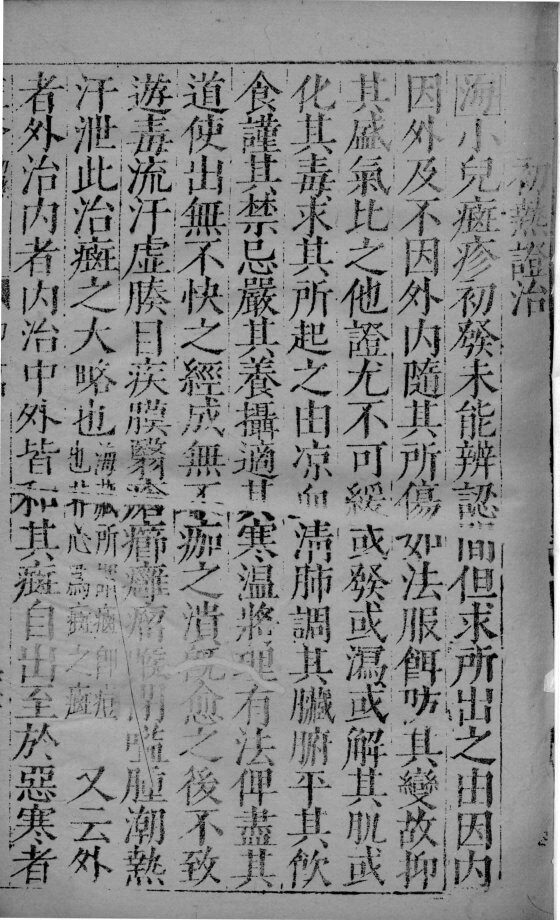 初熱證治
海小兒癍疹初發未能辨認間但求所出之由因内
因外及不因外内隨其所傷如法服餌防其變故抑
其盛氣比之他證尤不可緩或發或瀉或解其肌或
化其毒求其所起之由凉血清肺調其臟腑平其飲
食謹其禁忌嚴其養攝適其寒温將理有法俾盡其
道使出無不快之經成無不痂之潰既愈之後不致
遊毒流汗虚腠目疾膜翳瘡癤癰瘤喉閉嗌腫潮熱
汗泄此治癍之大略也
海藏所謂癍即痘
也非心爲疹之癍
又云外
者外治内者内治中外皆和其癍自出至於惡寒者